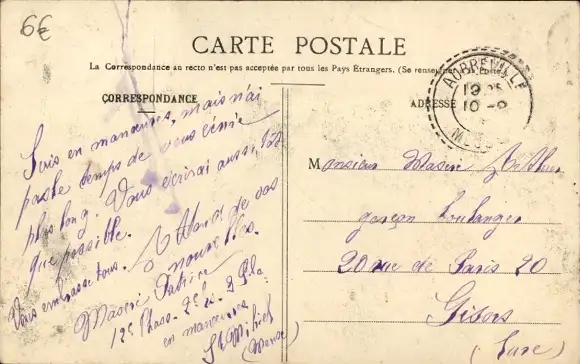 6€
CARTE POSTALE
La Correspondance au recto n'est pas acceptée par tous les Pays Étrangers. (Se renseigner
CORRESPONDANCE
ADRESSE
AUBREVILLE
19
10-9
Suis en manœuvres, mais n'ai
pas le temps de vous écrire
plus long. Vous écrirai aussi tôt
que possible. Attend de vos
Vous embrasse tous. nouvelles.
12e Chass. 2e
en manœuvres
St Mihiel
(Meuse)
Monsieur Arthur
garçon boulanger
20 rue de Paris 20
Gisors
(Eure)